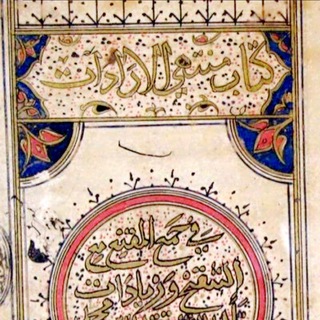 كتاب منتهى الارادات
في جمع المقنع مع
التنقيح وزيادات